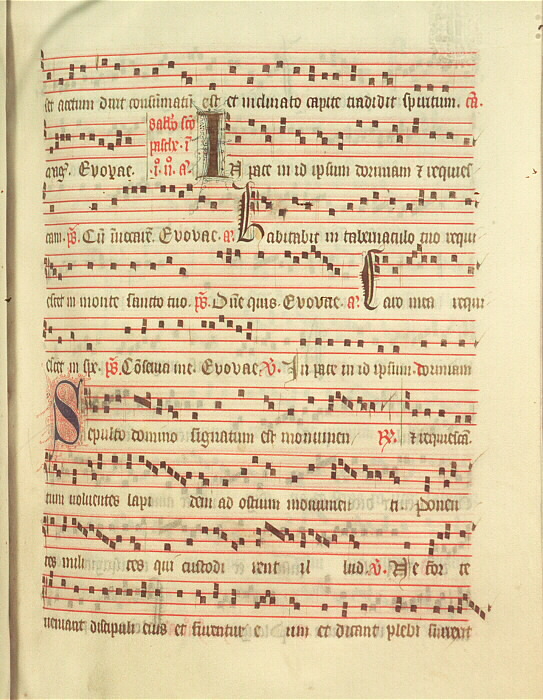 set acetum dixit consūmatū est et inclinato capite tradidit spiritum. a.
ang. Evovae. I N pace in id ipsum dormiam ⁊ requies
cam. ps. Cū invocarē. Evovae. a. Habitabit in tabernaculo tuo requi
escet in monte sancto tuo. ps. Dn̄e quis. Evovae. a. Caro mea requi
escet in spe. ps. Cōserva me. Evovae. v. In pace in id ipsum. dormiam
Sepulto domino signatum est monumen ⁊ requiescā.
tum volventes lapi dem ad ostium monumen ti. Ponen
tes mili tes qui custodi rent il lud. v. Ne for te
veniant discipuli eius et furentur e um et dicant plebi surrexit